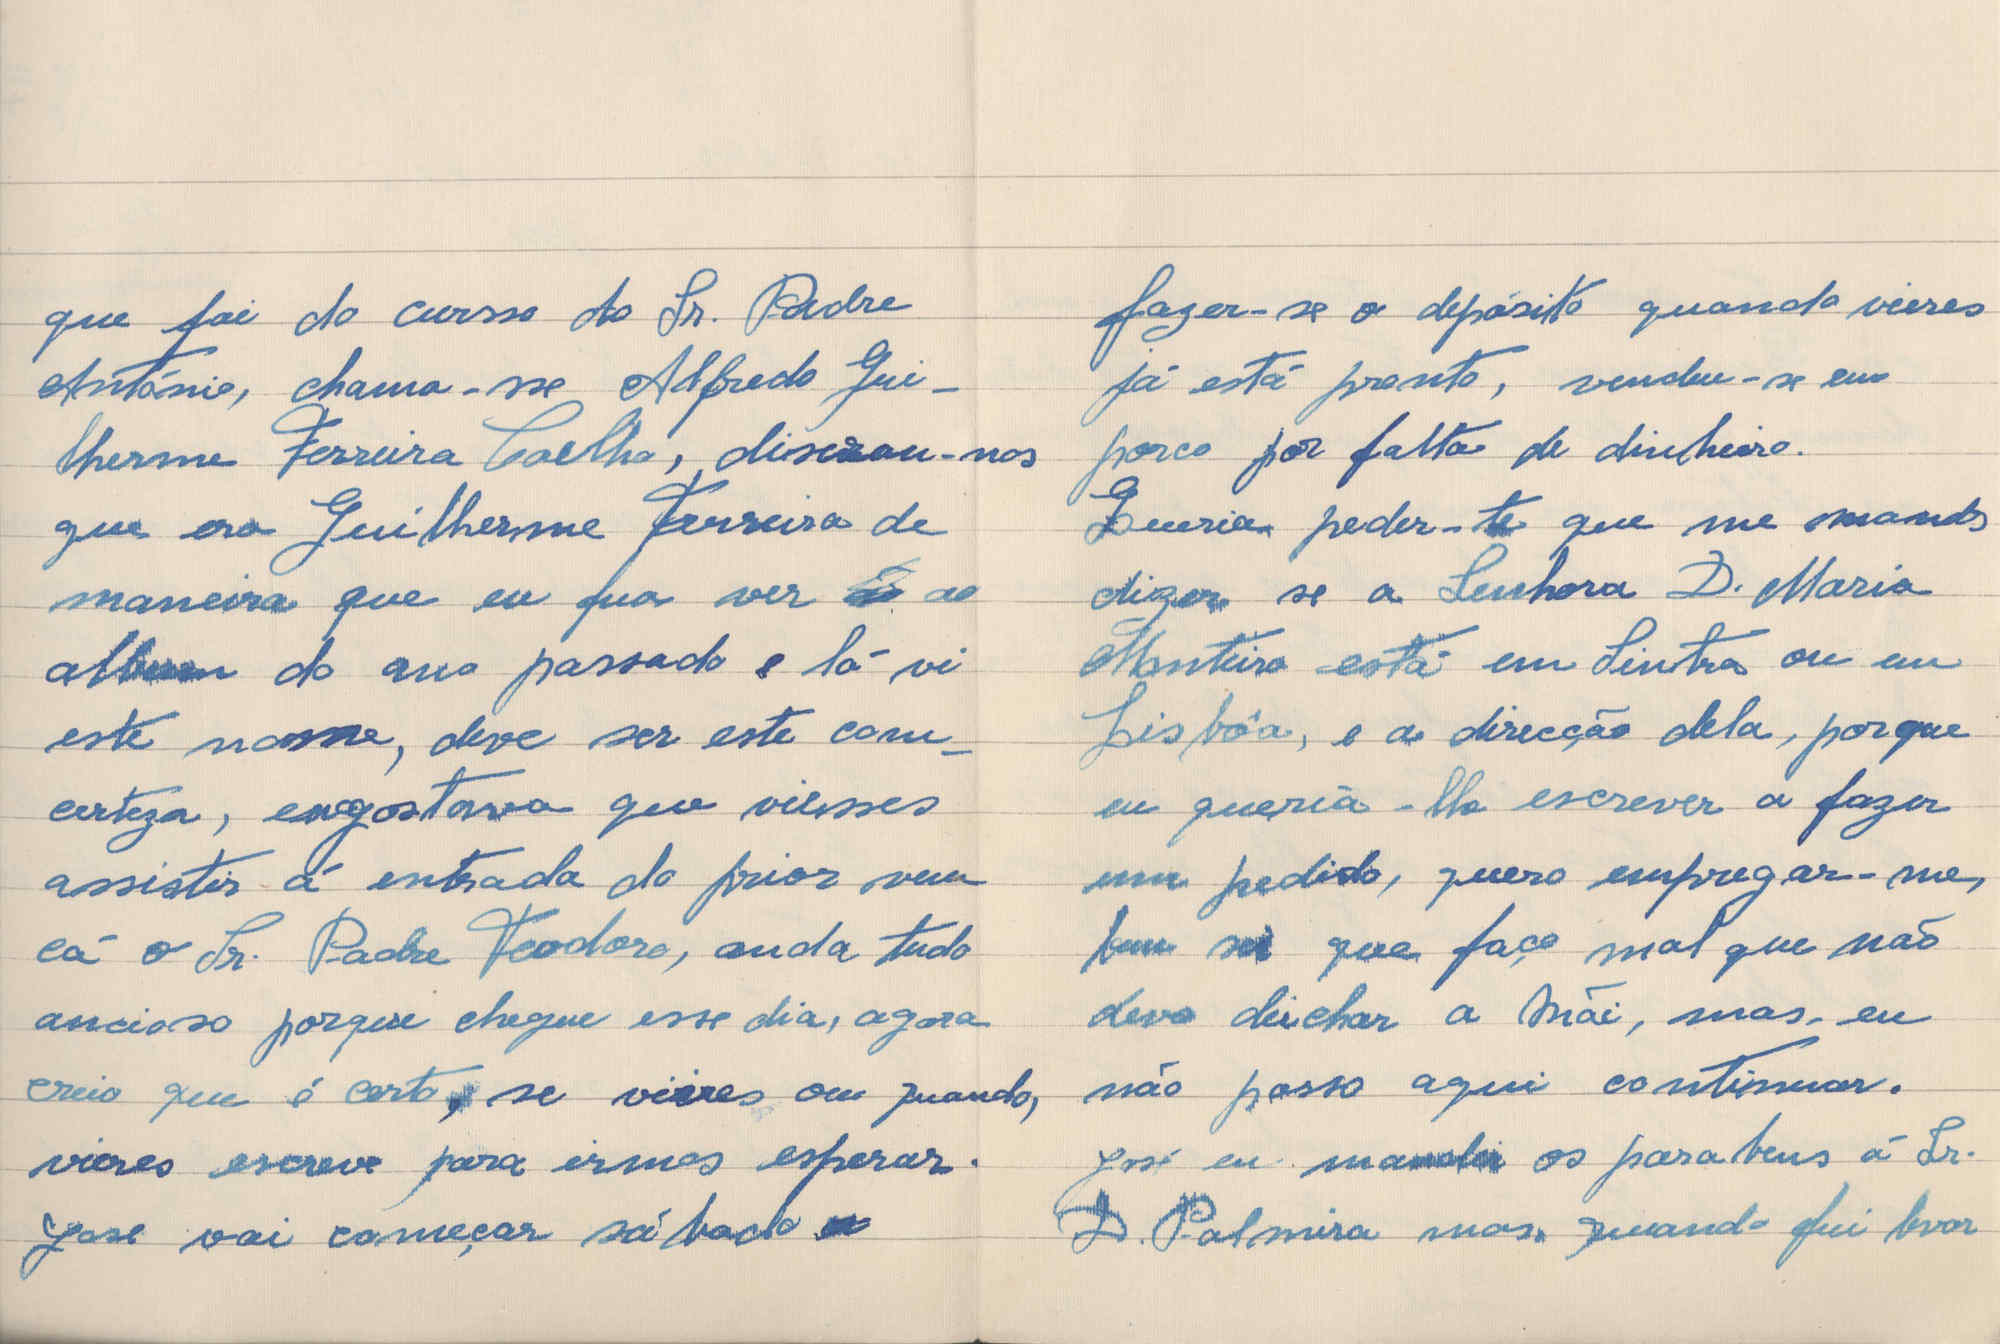 que foi do curso do Sr. Padre
António, chama-sse Alfredo Gui-
lherme Ferreira Coelho, diseram-nos
que era Guilherme Ferreira de
maneira que eu fua ver ao
album do ano passado e lá vi
este nome, deve ser este com-
certeza, eu gostava que viesses
assistir á entrada do prior vem
cá o Sr. Padre Teodoro, anda tudo
ancioso porque chegue esse dia, agora
creio que é certo, se vieres ou quando,
vieres escreve para irmos esperar.
José vai começar sábado a
fazer-se o depósito quando vieres
já está pronto, vendeu-se um
porco por falta de dinheiro.
Queria peder-te que me mandes
dizer se a Senhora D. Maria
Monteiro está em Sintra ou em
Lisbôa, e a direcção dela, porque
eu queria-lhe escrever a fazer
um pedido, quero empregar-me,
bem sei que faço mal que não
devo deichar a Mãi, mas, eu
não posso aqui continuar.
José eu mandei os parabens á Sr.
D. Palmira mas, quando fui levar